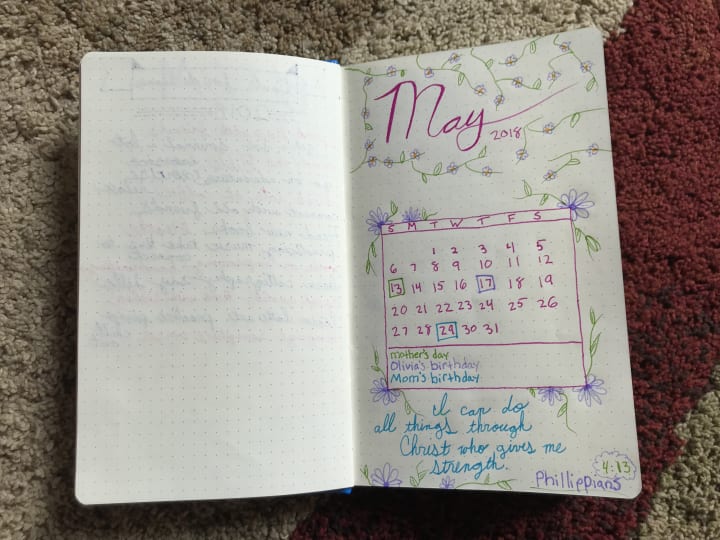 May
2018
S M T W T F S
1 2 3 4 5
6 7 8 9 10 11 12
13 14 15 16 17 18 19
20 21 22 23 24 25 26
27 28 29 30 31
mother's day
Olivia's birthday
Mom's birthday
I can do
all things through
Christ who gives me
strength.
4:13
Phillippians